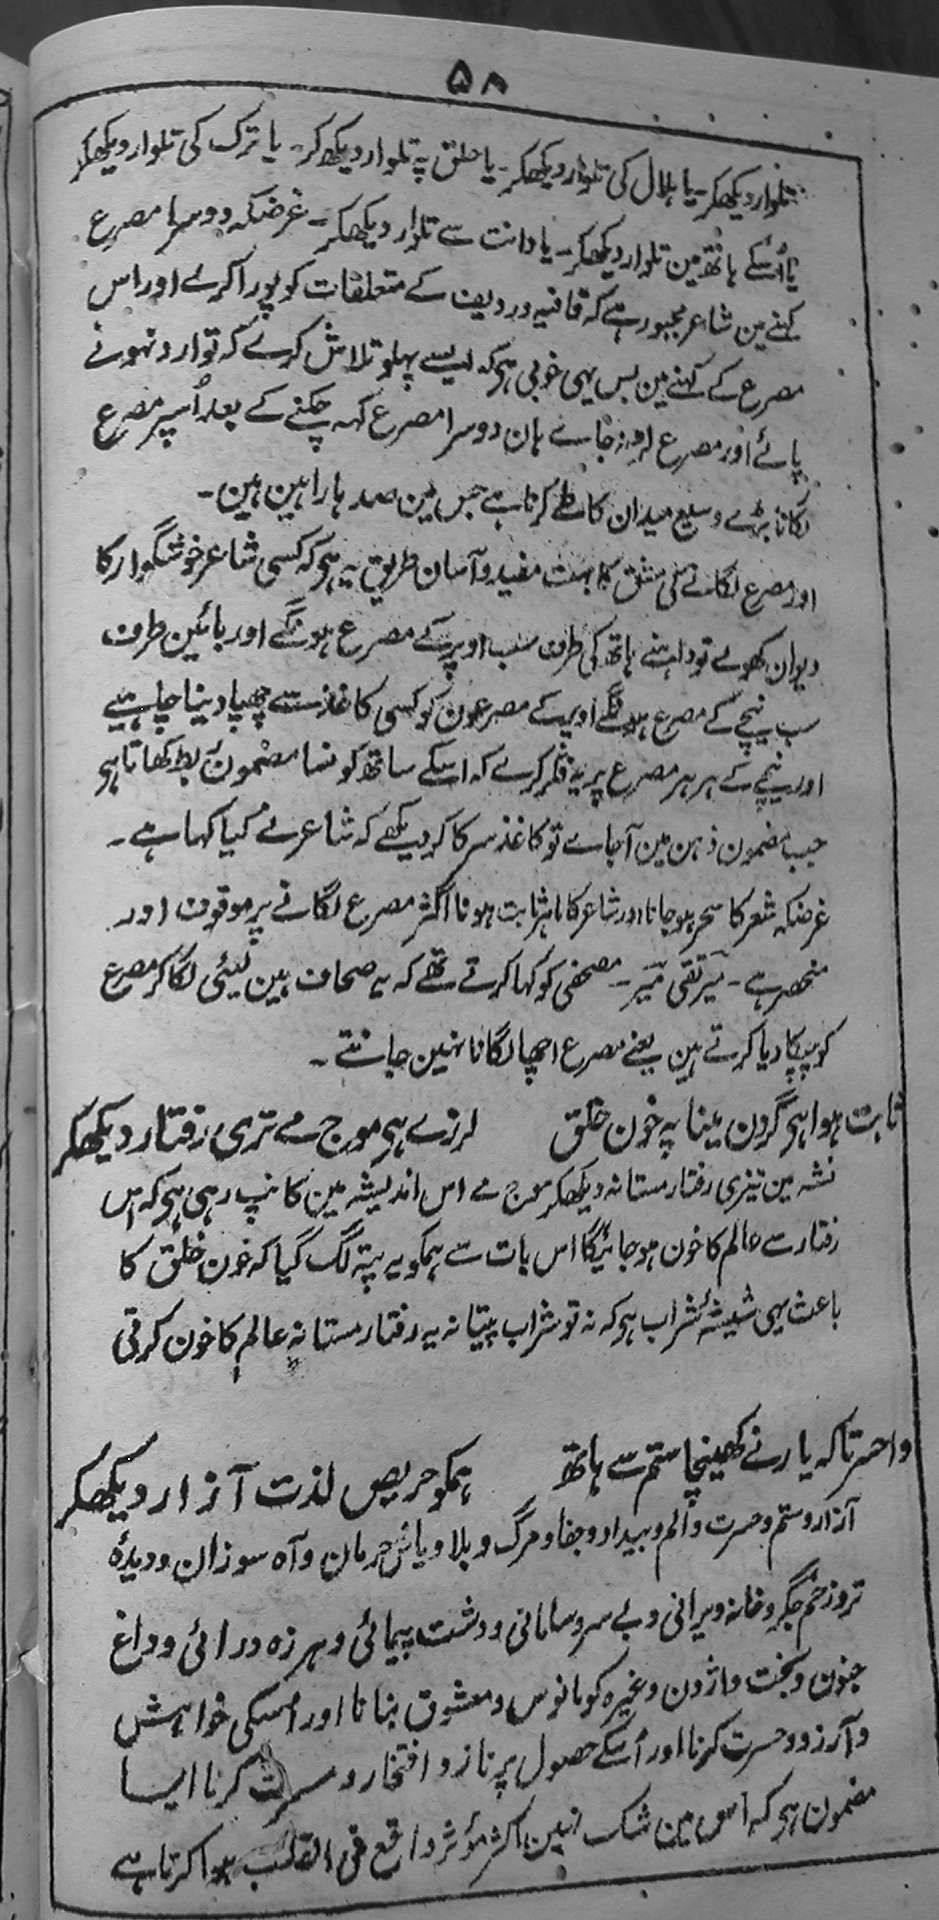 ۵۸
تلوار دیکھکر۔ یا ہلال کی تلوار دیکھکر۔ یا حلق پہ تلوار دیکھکر۔ یا ترک کی تلوار دیکھکر
یا اُسکے ہاتھ مین تلوار دیکھکر۔ یا دانت سے تلوار دیکھکر۔ غرضکہ دوسرا مصرع
کہنے مین شاعر مجبور ہے کہ قافیہ و ردیف کے متعلقات کو پورا کرے اور اس
مصرع کے کہنے مین بس یہی خوبی ہی کہ ایسے پہلو تلاش کرے کہ توارد نہونے
پائے اور مصرع لڑ نہ جاے ہان دوسرا مصرع کہہ چکنے کے بعد اُسپر مصرع
لگانا بڑے وسیع میدان کا طے کرنا ہے جس مین صدہا راہین ہین۔
اور مصرع لگانے کی مشق کا بہت مفید و آسان طریق یہ ہی کہ کسی شاعر خوشگوار کا
دیوان کھولے تو داہنے ہاتھ کی طرف سب اوپر کے مصرع ہونگے اور بائین طرف
سب نیچے کے مصرع ہونگے اوپر کے مصرعون کو کسی کاغذ سے چھپا دینا چاہیے
اور نیچے کے ہر ہر مصرع پر یہ فکر کرے کہ اسکے ساتھ کونسا مضمون ربط کھاتا ہی
جب مضمون ذہن مین آجاے تو کاغذ سرکا کر دیکھے کہ شاعر نے کیا کہا ہے۔
غرضکہ شعر کا سحر ہو جانا اور شاعر کا ماہر ثابت ہونا اکثر مصرع لگانے پر موقوف اور
منحصر ہے۔ میر تقی میر۔ مصحفی کو کہا کرتے تھے کہ یہ صحاف ہین لیئی لگا کر مصرع
کو چپکا دیا کرتے ہین یعنے مصرع اچھا لگانا نہین جانتے۔
ثابت ہوا ہی گردن مینا پہ خون خلق لرزے ہی موج مے تری رفتار دیکھکر
نشہ مین تیری رفتار مستانہ دیکھکر موج مے اس اندیشہ مین کانپ رہی ہی کہ اس
رفتار سے عالم کا خون ہو جائیگا اس بات سے ہمکو یہ پتہ لگ گیا کہ خون خلق کا
باعث یہی شیشۂ شراب ہی کہ نہ تو شراب پیتا نہ یہ رفتار مستانہ عالم کا خون کرتی
واحسرتا کہ یار نے کھینچا ستم سے ہاتھ ہمکو حریص لذت آزار دیکھکر
آزار و ستم و حسرت و الم و بیداد و جفا و مرگ و بلا و یاس و حرمان و آہ سوزان و دیدۂ
تر و زخم جگر و خانہ ویرانی و بے سر و سامانی و دشت پیمائی و ہرزہ درائی و داغ
جنون و بخت واژون وغیرہ کو مانوس و معشوق بنانا اور اُسکی خواہش
و آرزو و حسرت کرنا اور اُسکے حصول پر ناز و افتخار و مسرت کرنا ایسا
مضمون ہی کہ اس مین شک نہین اکثر مؤثر و اقع فی القلب ہوا کرتا ہے